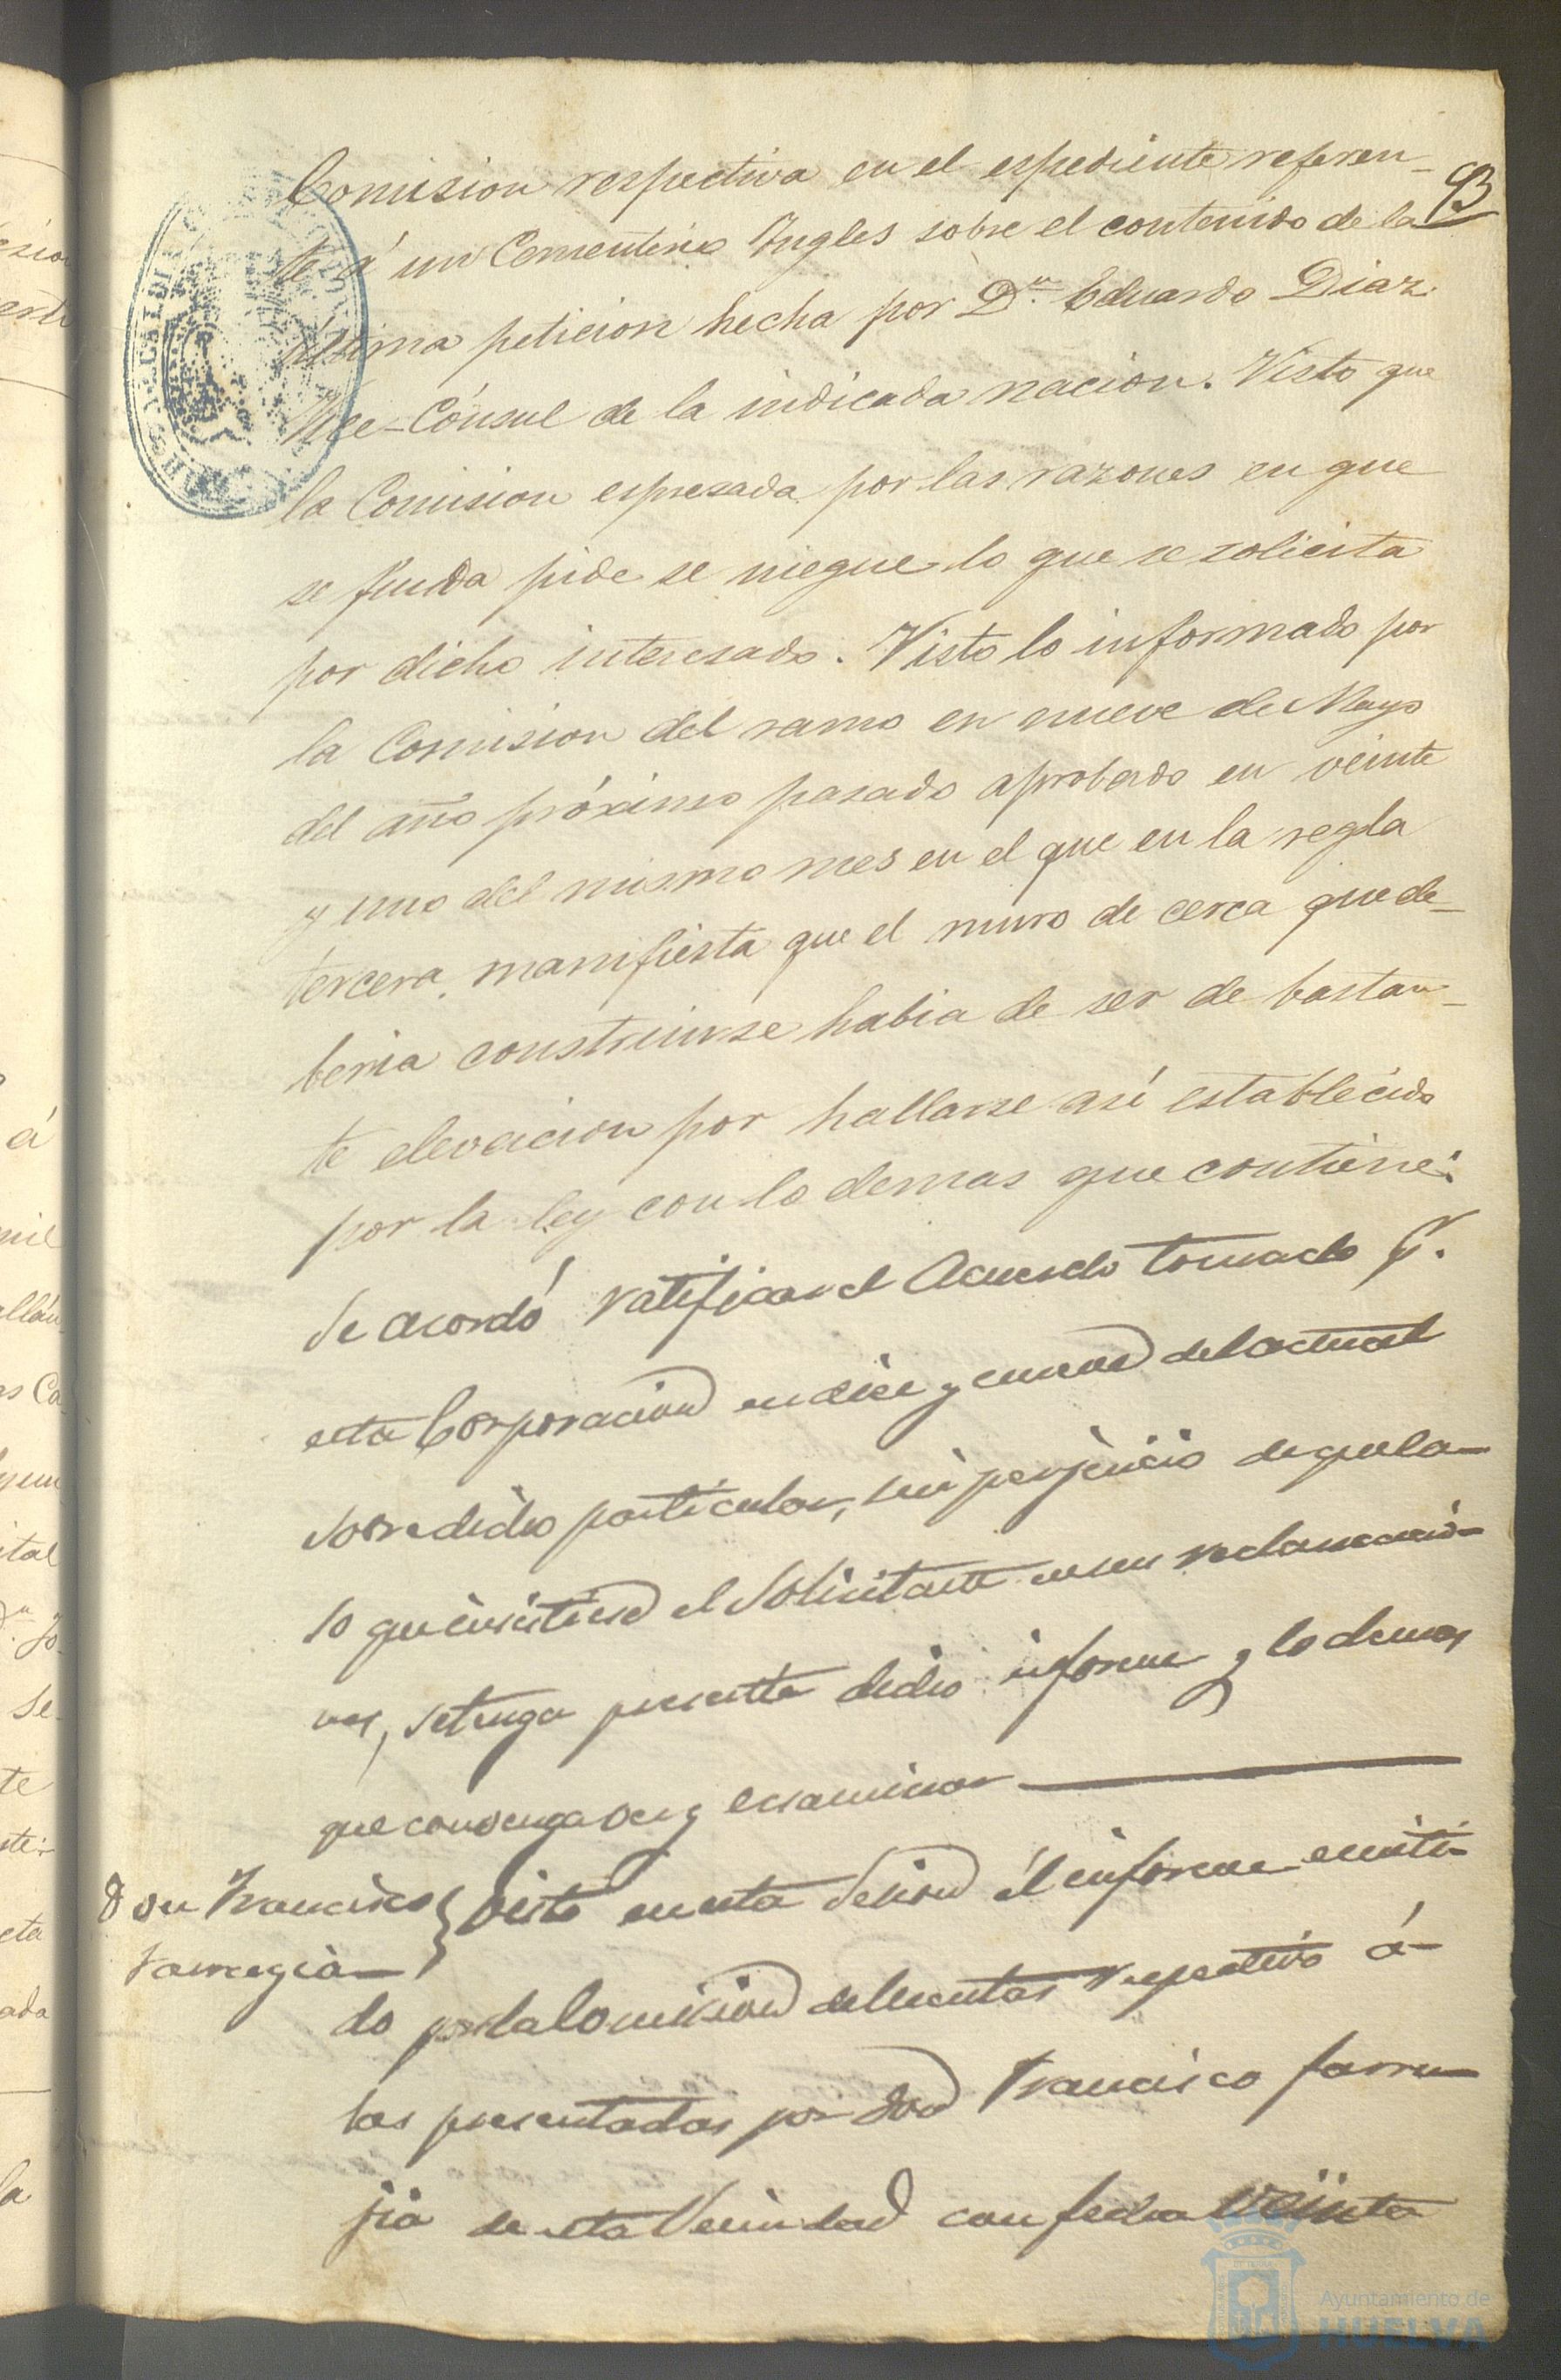 93
Comision respectiva en el espediente referen-
te á un Cementerio Ingles sobre el contenido de la
última peticion hecha por D.n Eduardo Diaz
Vice-Cónsul de la indicada nacion. Visto que
la Comision espresada por las razones en que
se funda pide se niegue lo que se solicita
por dicho interesado. Visto lo informado por
la Comision del ramo en nueve de Mayo
del año próximo pasado aprobado en veinte
y uno del mismo mes en el que en la regla
tercera manifiesta que el muro de cerca que de-
beria construirse habia de ser de bastan-
te elevacion por hallarse así establecido
por la ley con lo demas que contiene:
Se acordó ratificar el Acuerdo tomado p.r
esta Corporacion en diez y nueve del actual
sobre dicho particular, sin perjuicio de que ca-
so que insistiese el Solicitante en su reclamacio-
nes, se tenga presente dicho informe y lo demas
que convenga ver y ecsaminar
Don Francisco
Farregia
Visto en esta Sesion el informe emiti-
do por la Comision de Cuentas respectivo á
las presentadas por Don Francisco Farru-
jia de esta Vecindad con fecha Veinte
Ayuntamiento de
HUELVA